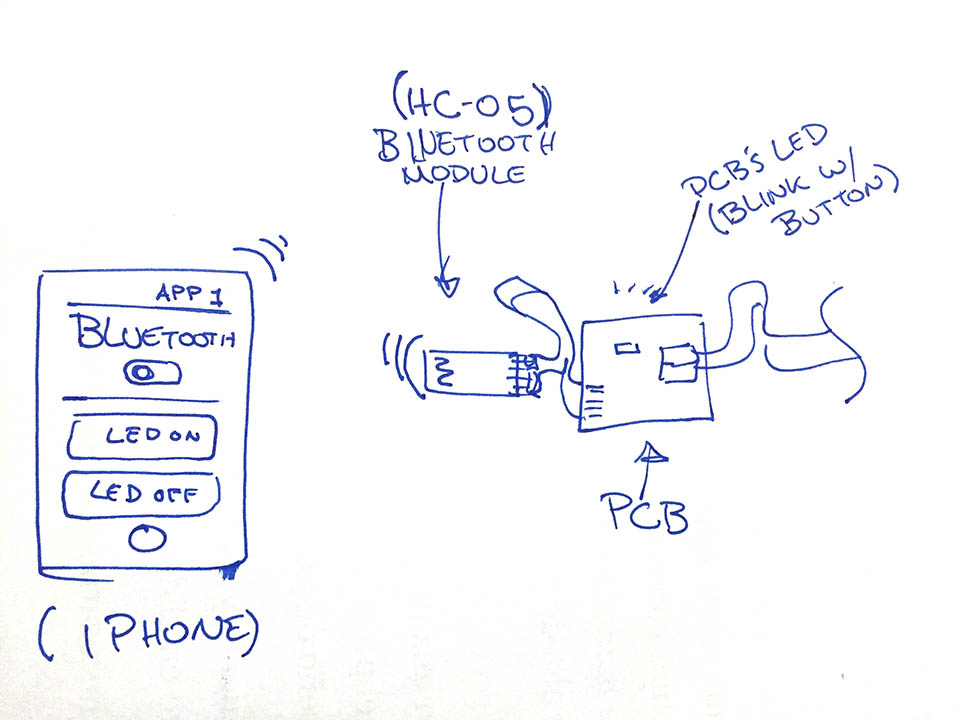 (HC-05)
BLUETOOTH
MODULE
PCB'S LED
(BLINK W/
BUTTON)
APP 1
BLUETOOTH
LED ON
LED OFF
PCB
(iPHONE)